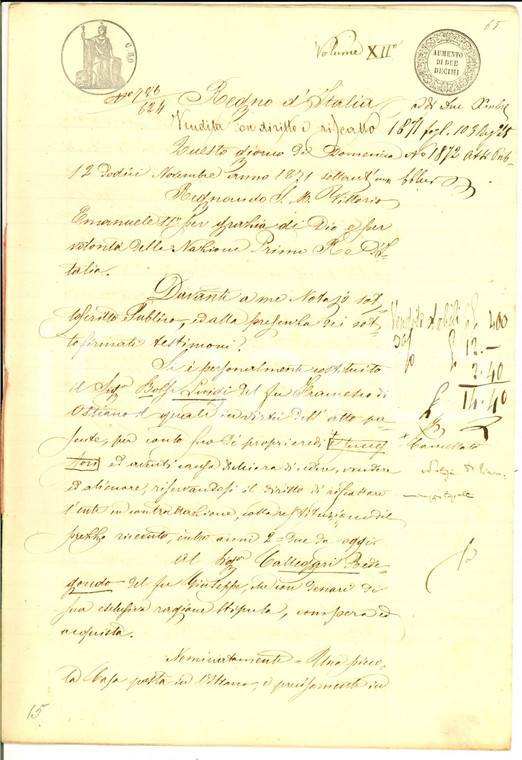 65
Volume XII°
AUMENTO
DI DUE
DECIMI
C 50
N° 786
624
Regno d'Italia
addì due Xmbre
Vendita con diritto e riscatto
1871 fogl. 103
Questo giorno di Domenica
N° 1872 Atti Pub
12 Dodici Novembre anno 1871
Regnando S. M. Vittorio
Emanuele II° per grazia di Dio e per
volontà della Nazione Primo Re d'I-
talia.
Davanti a me Notajo sot
toscritto Pubblico, ed alla presenza dei sot
to firmati testimoni.
Si è personalmente costituito
il Sig. Luigi del fu Francesco di
Ostiano il quale in virtù dell'atto pre-
sente, per conto suo di proprie eredi
ed aventi causa dichiara di cedere, vendere
ed alienare, riservandosi il diritto di riscattare
l'ente in contrattazione, colla restituzione del
prezzo ricevuto, entro anni 2 due da oggi
Al Sig. Calleggari Rede-
gondo del fu Giuseppe, che con denari di
sua esclusiva ragione stipula, compera ed
acquista.
Nominativamente = Una picco
la Casa posta in Ostiano, e precisamente in
200
12.—
2.40
14.40
15